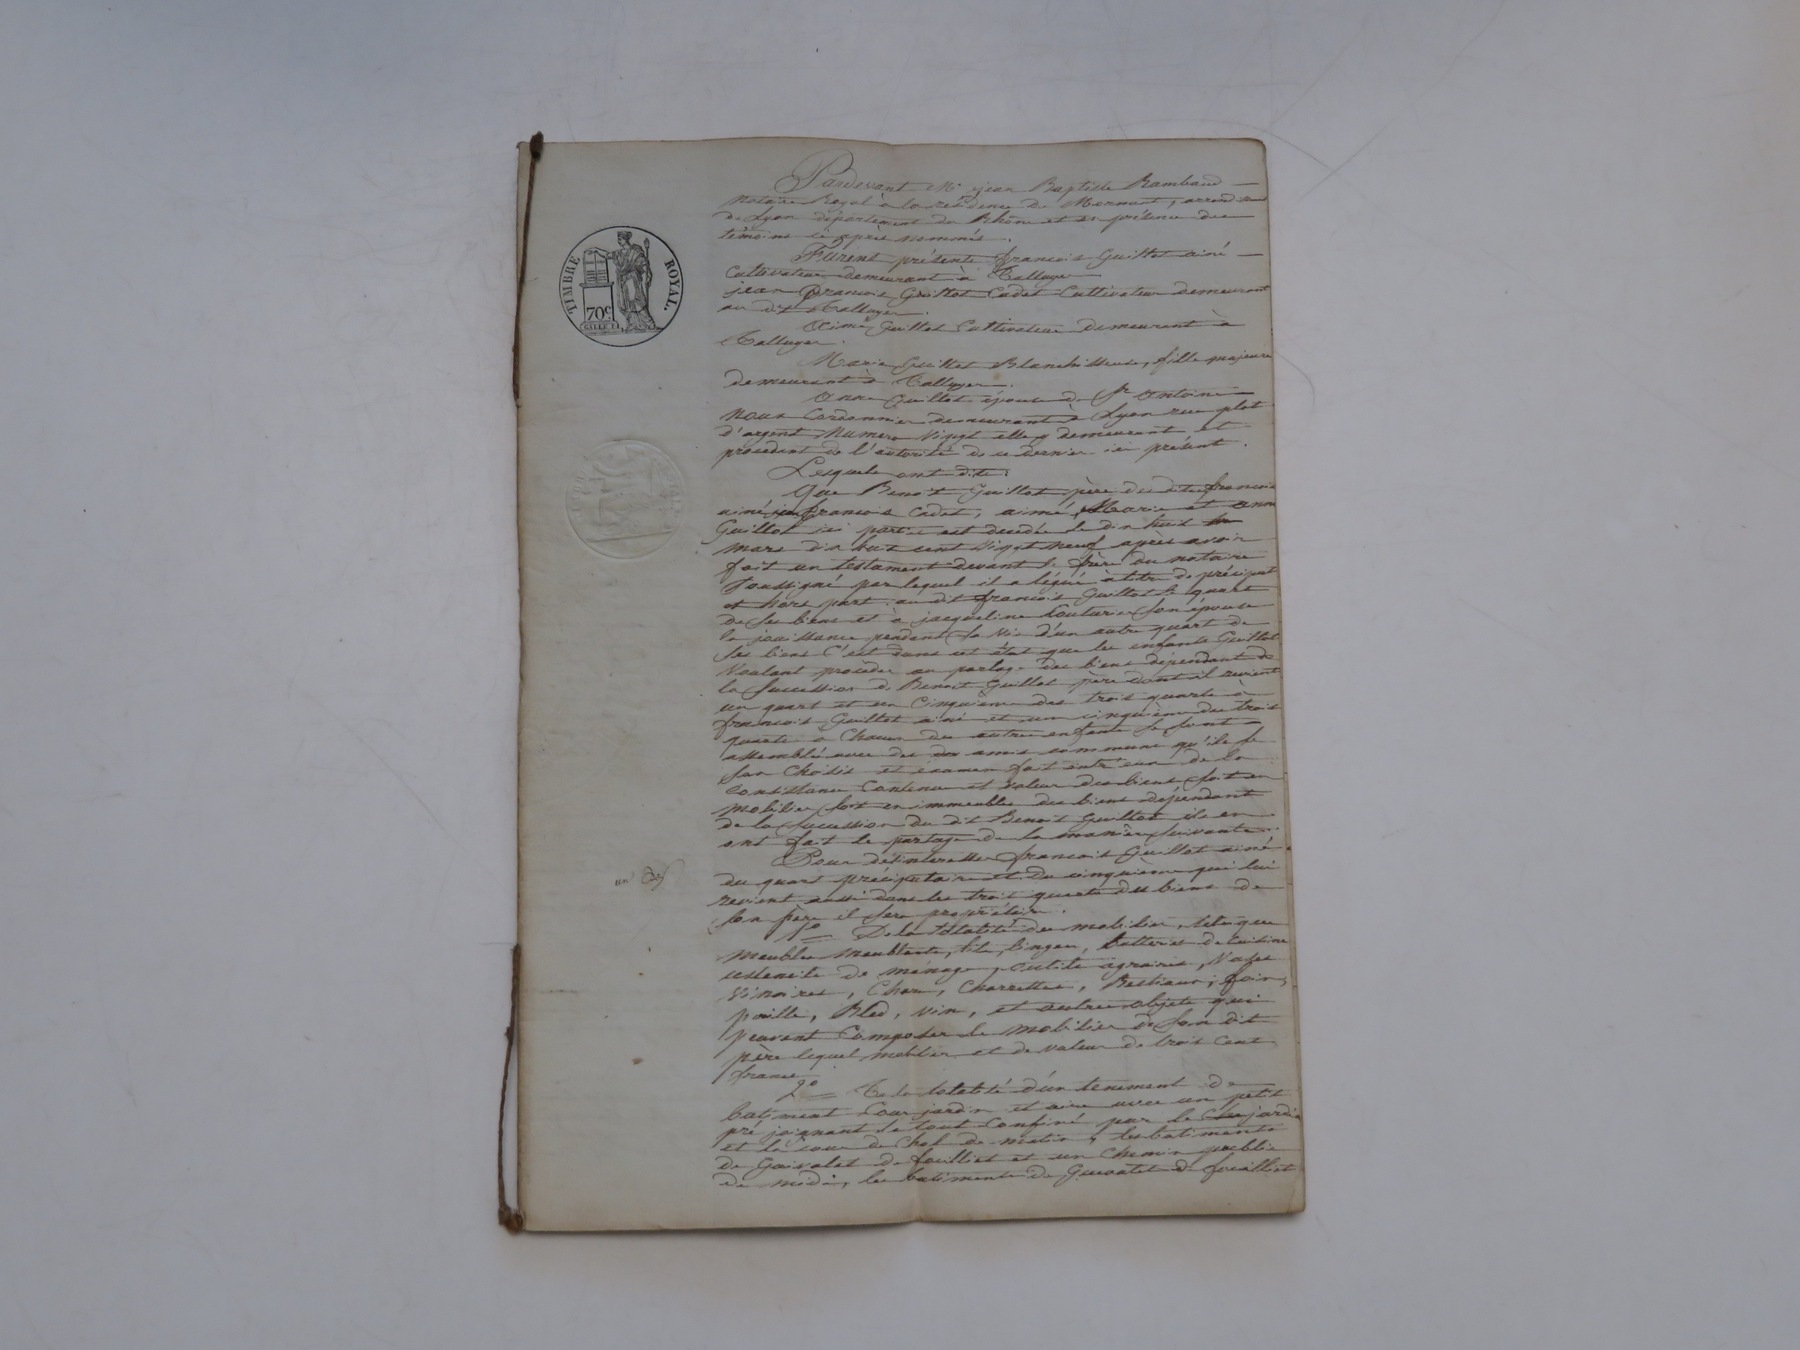 TIMBRE ROYAL.
70c
Pardevant Me jean Baptiste Rambaud
notaire Royal à la residence de Mornant, arrond
de Lyon département du Rhône et en présence des
témoins ci après nommés.
Furent présents françois Guillot ainé
Cultivateur demeurant à Talluyer
jean françois Guillot Cadet Cultivateur demeurant
au dit Talluyer.
Aimé Guillot Cultivateur demeurant à
Talluyer.
Marie Guillot Blanchisseuse, fille majeure
demeurant à Talluyer.
Anne Guillot épouse de Sr Antoine
Cordonnier demeurant à Lyon rue plat
d'argent Numero vingt elle y demeurant et
procedant de l'autorité de ce dernier ici présent.
Lesquels ont dits:
Que Benoit Guillot père des dits francois
ainé, jean francois Cadet, aimé, Marie et anne
Guillot ici parties est decedé le dix huit
mars dix huit cent vingt neuf après avoir
fait un testament devant le frère du notaire
soussigné par lequel il a légué à titre de préciput
et hors part, au dit francois Guillot le quart
de ses biens et à jacqueline Couturier son épouse
la jouissance pendant sa vie d'un autre quart de
ses biens C'est dans cet état que les enfants Guillot
Voulant procéder au partage des biens dépendant de
la succession de Benoit Guillot père dont il revient
un quart et un Cinquième des trois quarts à
francois Guillot ainé et un cinquième des trois
quarts à Chacun des autres enfants se sont
assemblés avec des amis communs qu'ils se
son choisis et éxamen fait entr'eux de la
Consistance Contenue et valeur des biens soit en
mobilier soit en immeubles des biens dépendant
de la succession du dit Benoit Guillot ils en
ont fait le partage de la manière suivante.
Pour désinteresser francois Guillot ainé
du quart préciputaire et du cinquième qui lui
revient aussi dans les trois quarts des biens de
son père il sera propriétaire.
1o = De la totalité du mobilier, tels que
meubles meublants, lits, linges, batterie de Cuisine
ustensils de ménage, outils agraires, Vases
vinaires, Chars, Charrettes, Bestiaux, foin,
paille, Bled, vin, et autres objets qui
peuvent Composer le mobilier de son dit
père lequel mobilier est de valeur de trois Cent
francs
2o = De la totalité d'un tenement de
batiment Cour jardin et aire avec un petit
pré joignant le tout Confiné par le jardin
et la cour de Chol de matin, les batiments
de Guivalet de fouilliet et un Chemin public
de midi, les batiments de Guivalet de fouilliet